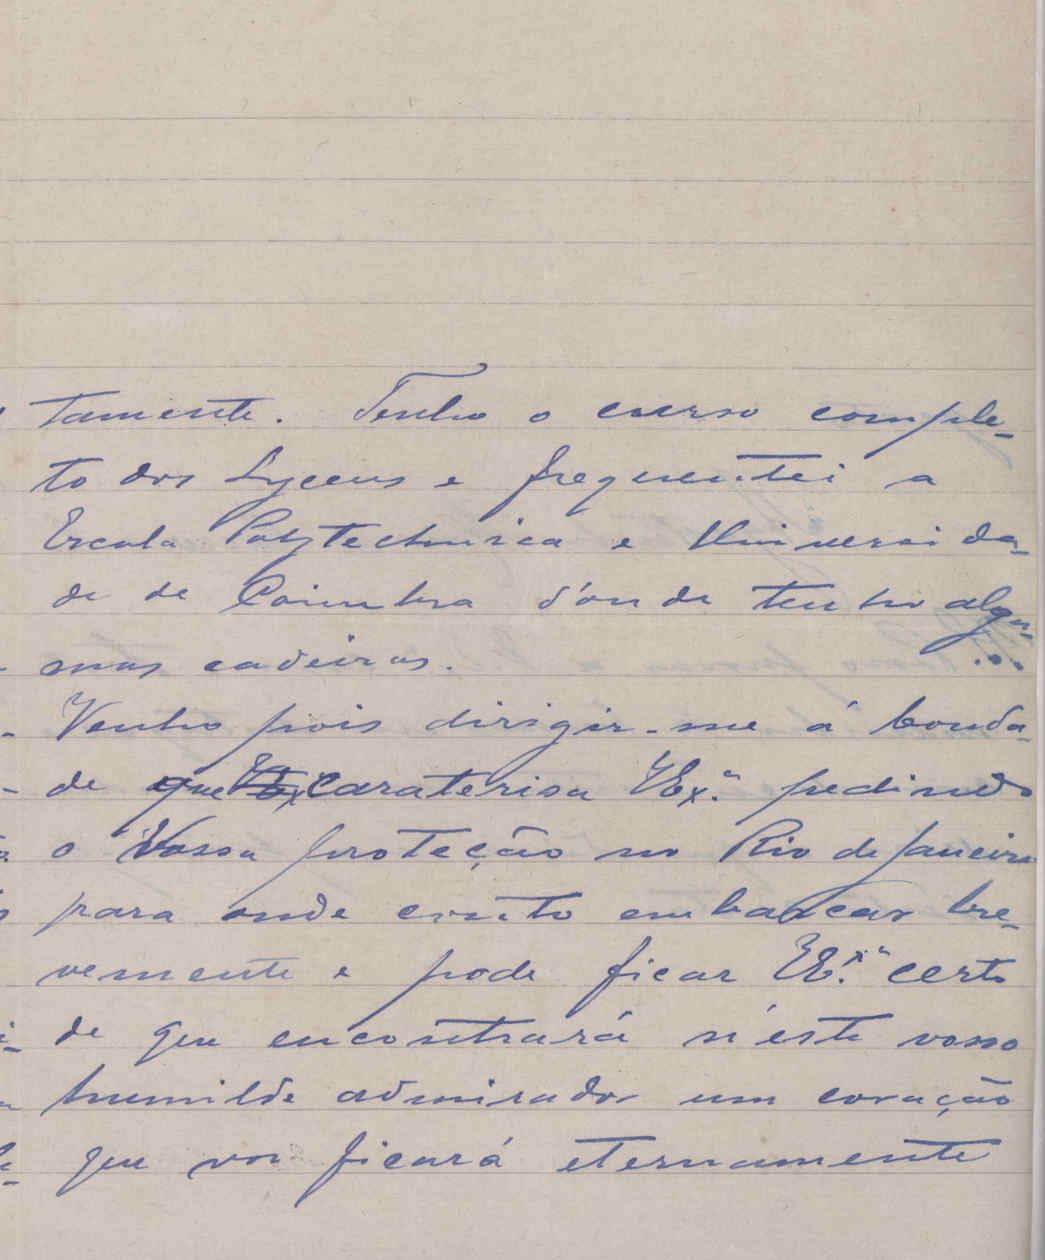 tamente. Tenho o curso comple-
to dos Lyceus e frequentei a
Escola Polytechnica e Universida-
de de Coimbra d'onde tenho algu-
mas cadeiras.
Venho pois dirigir-me á bonda-
de que caraterisa VEx.ª pedindo
o Vossa proteção no Rio de Janeiro
para onde conto embarcar bre-
vemente e pode ficar VEx.ª certo
de que encontrará n'este vosso
humilde admirador um coração
que vos ficará eternamente